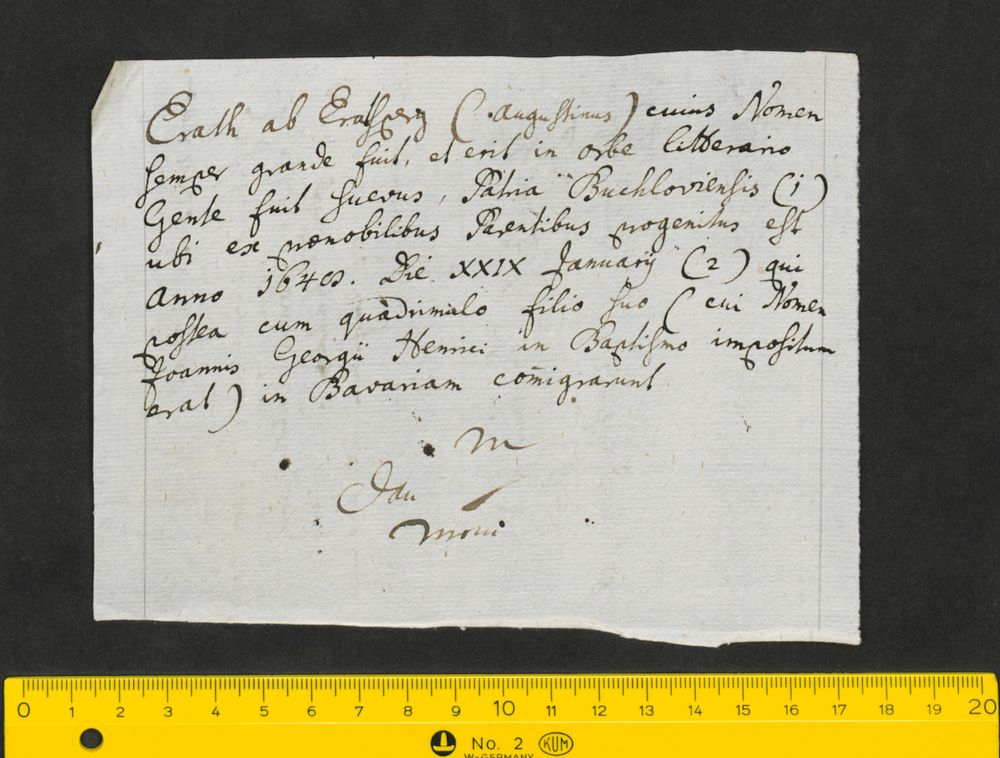 Erath ab Erathsperg (Augustinus) cuius Nomen
semper grande fuit, et erit in orbe litterario
Gente fuit Suevus, Patria Buchloviensis (1)
ubi ex prænobilibus Parentibus progenitus est
Anno 1648. Die XXIX Januarÿ (2) qui
postea cum quadrimulo filio suo (cui Nomen
Joannis Georgÿ Henrici in Baptismo impositum
erat) in Bavariam com̄igrarunt
m
0 1 2 3 4 5 6 7 8 9 10 11 12 13 14 15 16 17 18 19 20
No. 2 KUM
W-GERMANY